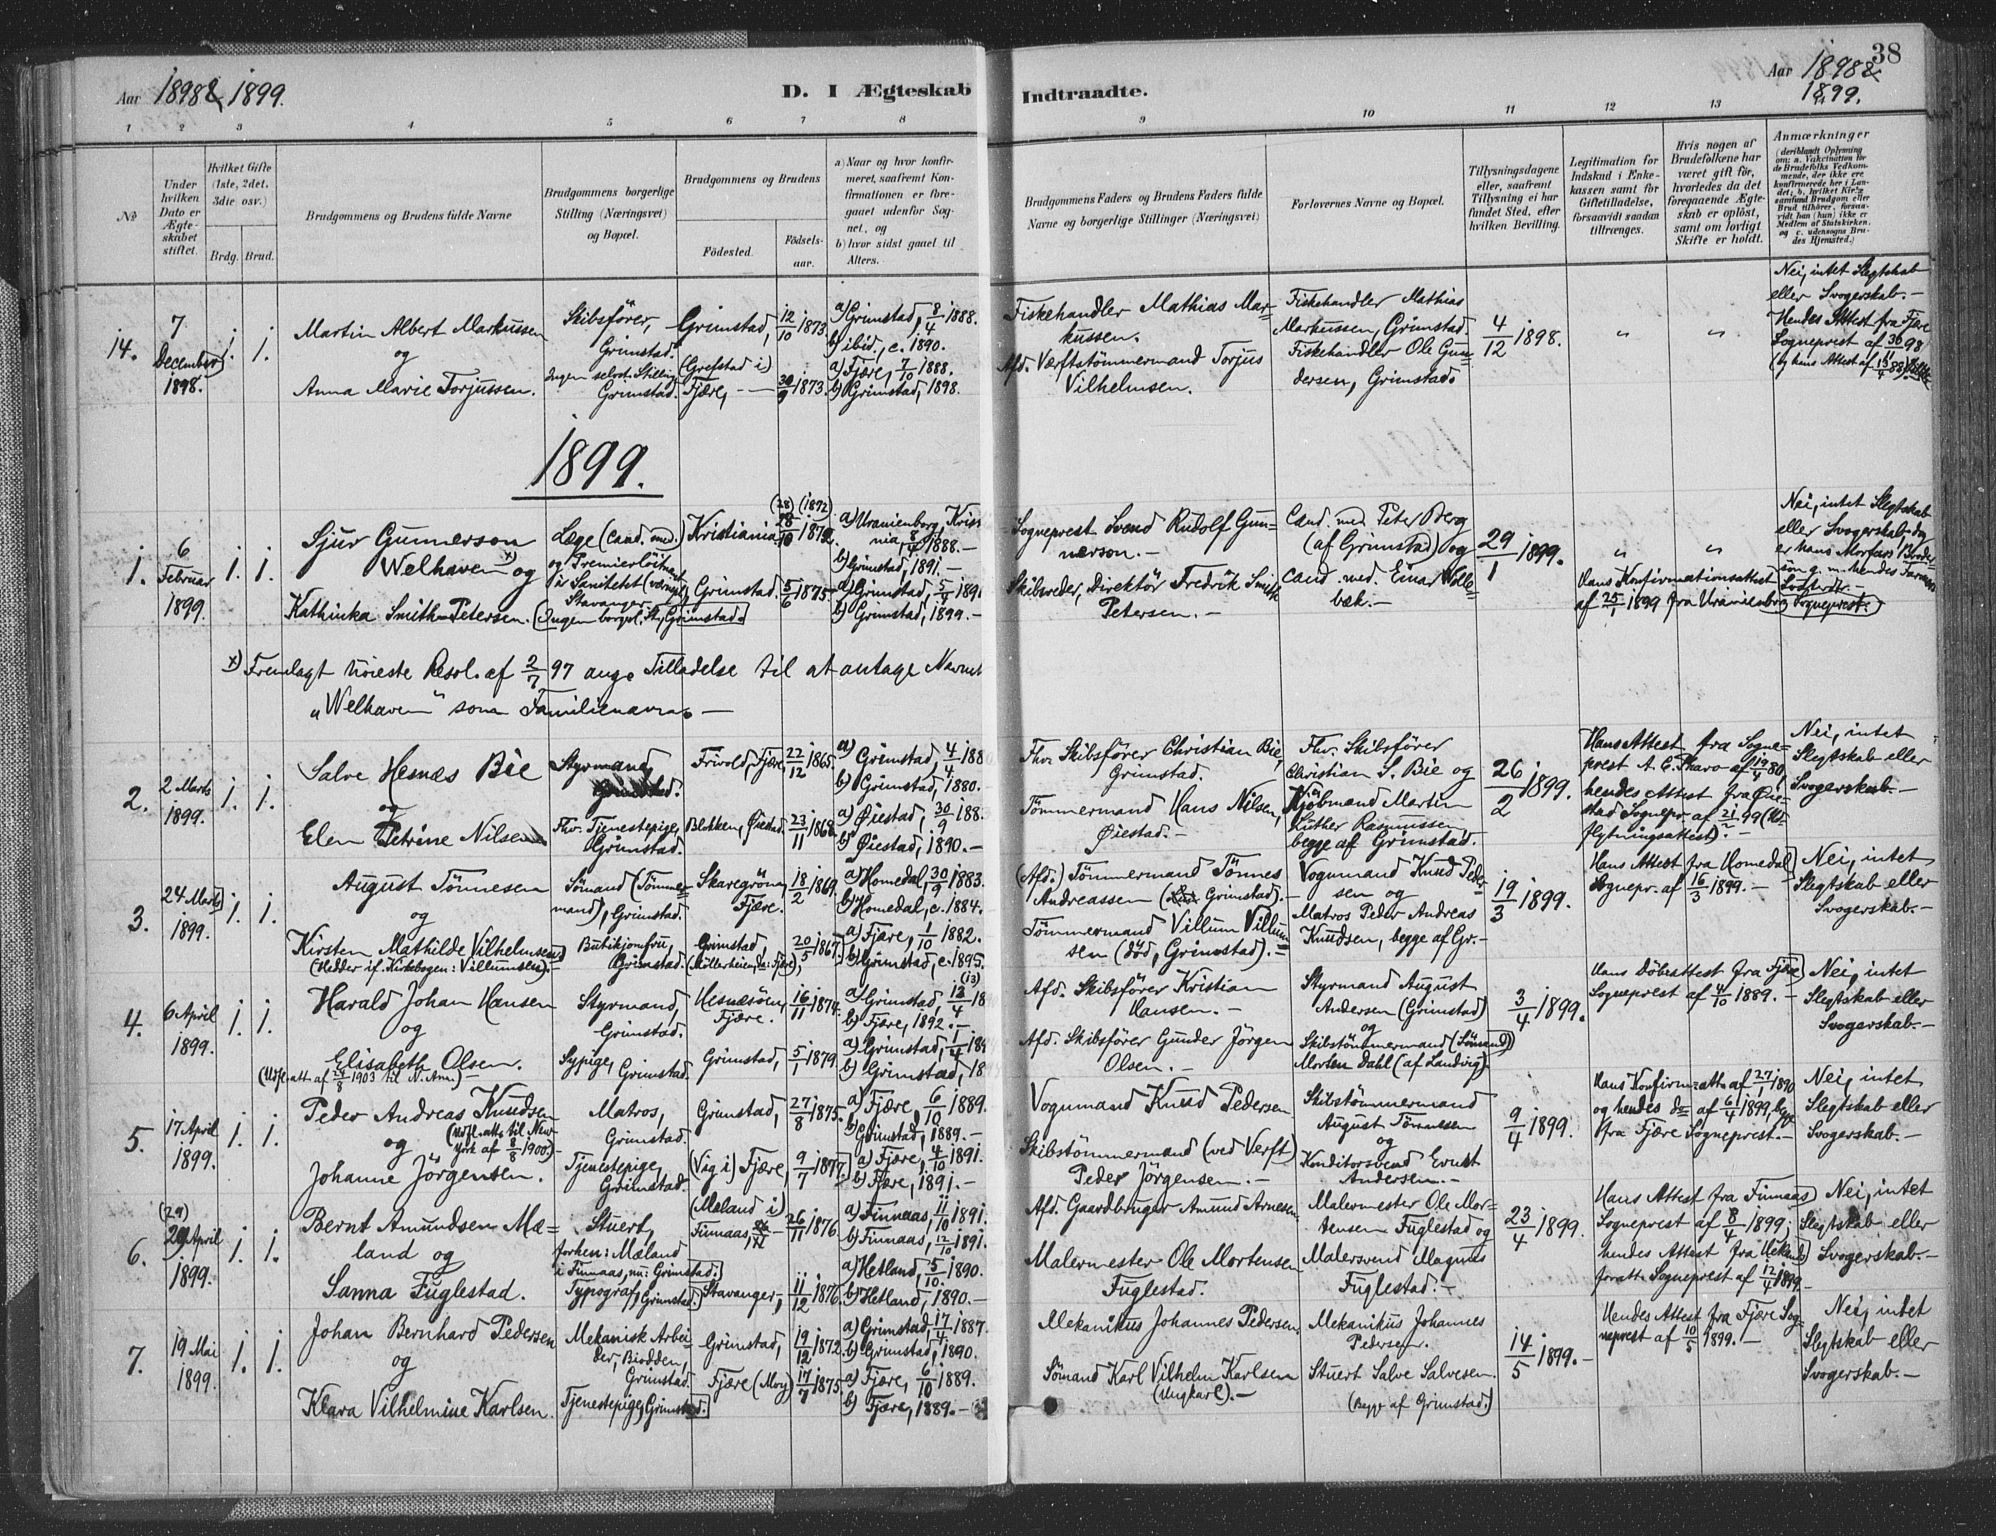 38
Aar 1898 & 1899.
D. I Ægteskab Indtraadte.
Aar 1898 & 1899.
1 2 3 4 5 6 7 8 9 10 11 12 13
№
Under hvilken Dato er Ægteskabet stiftet.
Hvilket Gifte (1ste, 2det, 3die osv.)
Brdg. Brud.
Brudgommens og Brudens fulde Navne
Brudgommens borgerlige Stilling (Næringsvei) og Bopæl.
Brudgommens og Brudens
Födested. Födselsaar.
a) Naar og hvor konfirmeret, saafremt Konfirmationen er foregaaet udenfor Sognet, og
b) hvor sidst gaaet til Alters.
Brudgommens Faders og Brudens Faders fulde Navne og borgerlige Stillinger (Næringsvei)
Forlovernes Navne og Bopæl.
Tillysningsdagene eller, saafremt Tillysning ei har fundet Sted, efter hvilken Bevilling.
Legitimation for Indskud i Enkekassen samt for Giftetilladelse, forsaavidt saadan tiltrænges.
Hvis nogen af Brudefolkene har været gift för, hvorledes da det foregaaende Ægteskab er oplöst, samt om lovligt Skifte er holdt.
Anmærkninger
14. 7 December 1898. 1. 1.
Martin Albert Markussen
og
Anna Marie Torjussen.
Skibsförer, Grimstad.
Ingen selvst. Stilling Grimstad.
Grimstad, 12/10 1873.
(Grefstad i) Fjære, 30/9 1873.
a) Grimstad, 8/4 1888.
b) ibid., c. 1890.
a) Fjære, 7/10 1888.
b) Grimstad, 1898.
Fiskehandler Mathias Markussen.
Afd. Værftstømmermand Torjus Vilhelmsen.
Fiskehandler Mathias Markussen, Grimstad.
Fiskehandler Ole Gundersen, Grimstad.
4/12 1898. " "
Nei, intet Slegtskab eller Svogerskab.—
Hendes Attest fra Fjære Sogneprest af
1899.
1. 6 Februar 1899. 1. 1.
Sjur Gunnerson
Welhaven x) og
Kathinka Smith-Petersen.
Læge (Cand. med.) og Premierlöitnant i Sanitetet
Stavanger.
(Ingen borgl. St.) Grimstad.
Kristiania (28) (1872)
Grimstad. 5/6 1875
a) Uranienborg, Kristiania, 8/4 1888.—
b) Grimstad, 1891.—
a) Grimstad, 5/4 189
b) Grimstad, 1899.—
Sogneprest Svend Rudolf Gunnerson.—
Skibsreder, Direktör Fredrik Smith Petersen.—
Cand. med. Peter Berg (af Grimstad) og
cand. med. Einar Hollebæk.—
29/1 1899. " "
Hans Konfirmationsattest af 25/1 1899 fra Uranienborg Sogneprest.
Nei, intet Slegtskab eller Svogerskab
x) Fremlagt höieste Resol. af 2/7 97 ang. Tilladelse til at antage Navnet
"Welhaven" som Familienavn.—
2. 2 Marts 1899. 1. 1.
Salve Hesnæs Bie
og
Elen Petrine Nilsen
Styrmand,
Grimstad.
Fhv. Tjenestepige, Grimstad.
Frivold, Fjære 22/12 1865.
Blokken, Øiestad 23/11 1868.
a) Grimstad, 4/4 188
b) Grimstad, 1880.
a) Øiestad, 30/9 188.
b) Øiestad, 1890.—
Fhv. Skibsförer Christian Bie, Grimstad.
Tömmermand Hans Nilsen, Øiestad.—
Fhv. Skibsförer Christian S. Bie og
Kjöbmand Martin Luther Rasmussen
begge af Grimstad.
26/2 1899.
Hans Attest fra Sogneprest
hendes Attest fra Øiestad Sognepr. af 21/2 99
flytningsattest).—
Nei, intet Slegtskab eller Svogerskab.—
3. 24 Marts 1899. 1. 1.
August Tönnesen
og
Kirsten Mathilde Vilhelmsen
(Hedder if. Kirkebogen: Villumsen).—
Sömand (Tömmermand), Grimstad.
Butikjomfru, Grimstad.
Skaregröm Fjære. 18/2 1869.
Grimstad, 20/5 1867.
a) Homedal 30/9 1883.
b) Homedal, c. 1884.
a) Fjære, 1/10 1882.
b) Grimstad, c. 1895.
(Afd.) Tömmermand Tönnes Andreassen (Grimstad).—
Tömmermand Villum Villumsen (död, Grimstad).—
Vognmand Knud Pedersen og
Matros Peder Andreas Knudsen, begge af Gr.—
19/3 1899.
Hans Attest fra Homedal Sognepr. af 16/3 1899.—
Nei, intet Slegtskab eller Svogerskab.—
4. 6 April 1899. 1. 1.
Harald Johan Hansen
og
Elisabeth Olsen.
(Udfl. att af 24/8 1903 til N. Am.)—
Styrmand, Grimstad.
Sypige, Grimstad.
Hesnæsöen, Fjære. 16/11 1874.
Grimstad, 5/1 1879.
a) Grimstad, 13/4 18
b) Fjære, 1892.—
a) Grimstad, 1/4 18
b) Grimstad, 18
Afd. Skibsförer Kristian Hansen.—
Afd. Skibsförer Gunder Jörgen Olsen.—
Styrmand August Andersen (Grimstad)
og
Skibstömmermand (Sömand) Morten Dahl (af Landvig)
3/4 1899.
Hans Döbsattest fra Fjære Sogneprest af 4/10 1889.—
Nei, intet Slegtskab eller Svogerskab.—
5. 17 April 1899. 1. 1.
Peder Andreas Knudsen
og (Udfl. atts til New York af 8/8 1900)—
Johanne Jörgensen.
Matros, Grimstad.
Tjenestepige, Grimstad.
Grimstad, 27/8 1875.
(Vig i) Fjære, 9/7 1877.
a) Fjære, 6/10 1889.
b) Grimstad, 1889.—
a) Fjære, 4/10 1891.
b) Fjære, 1891.—
Vognmand Knud Pedersen
Skibstömmermand (ved Verft) Peder Jörgensen.—
Skibstömmermand August Tönnesen
og
Konditorsvend Ernst Andersen.—
9/4 1899.
Hans Konfirm. att. af 27/1 1890 og hendes do af 6/4 1899, begge fra Fjære Sogneprest.—
Nei, intet Slegtskab eller Svogerskab.—
6. (29) April 1899. 1. 1.
Bernt Amundsen Mæland og
Sanna Fuglestad.
Stuert, forhen: Mæland i Finnaas, nu: Grimstad.
Typograf, Grimstad.
(Mæland i) Finnaas, 26/11 1876.
Stavanger, 11/12 1876.
a) Finnaas, 11/10 1891.
b) Finnaas, 12/10 1891.
a) Hetland, 5/10 1890.
b) Hetland, 1890.—
Afd. Gaardbruger Amund Arnesen
Malermester Ole Mortensen Fuglestad.
Malermester Ole Mortensen Fuglestad og
Malersvend Magnus Fuglestad.—
23/4 1899
Hans Attest fra Finnaas Sogneprest af 8/4 1899;
hendes Attest fra Hetland Sogneprest af 12/4 1899.
Nei, intet Slegtskab eller Svogerskab.—
7. 19 Mai 1899. 1. 1.
Johan Bernhard Pedersen
og
Klara Vilhelmine Karlsen.
Mekanisk Arbeider, Biodden, Grimstad.
Tjenestepige, Grimstad.
Grimstad, 19/12 1872.
Fjære (Moy) 17/7 1875
a) Grimstad, 17/4 1887.
b) Grimstad, 1890.
a) Fjære, 6/10 1889.
b) Fjære, 1889.—
Mekanikus Johannes Pedersen.
Sömand Karl Vilhelm Karlsen (Ungkarl).—
Mekanikus Johannes Pedersen.
Stuert Salve Salvesen.
(Begge af Grimstad.)
14/5 1899.—
Hendes Attest fra Fjære Sogneprest af 10/5 1899.—
Nei, intet Slegtskab eller Svogerskab.—